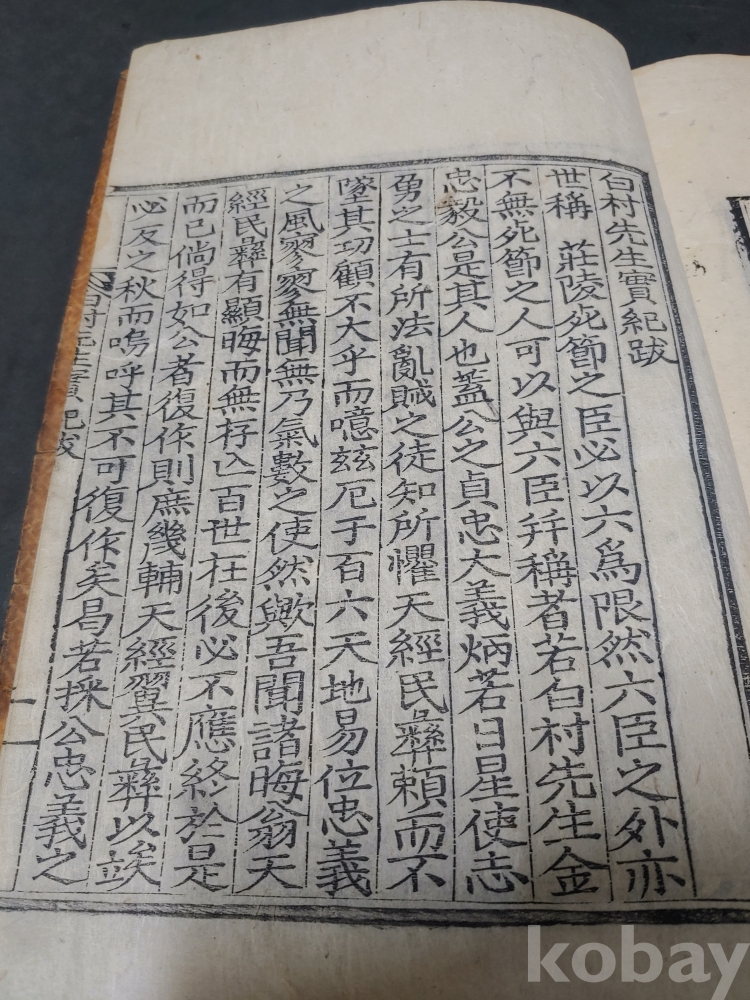 白村先生實紀跋
世稱 莊陵死節之臣必以六爲限然六臣之外亦
不無死節之人可以與六臣幷稱者若白村先生金
忠毅公是其人也蓋公之貞忠大義炳若日星使志
勇之士有所法亂賊之徒知所懼天經民彛賴而不
墜其功顧不大乎而噫玆厄于百六天地易位忠義
之風寥寥無聞無乃氣數之使然歟吾聞諸晦翁天
經民彛有顯晦而無存亾百世在後必不應終於是
而已倘得如公者復作則庶幾輔天經翼民彛以竢
必反之秋而嗚呼其不可復作矣曷若採公忠義之
白村先生實紀跋
kobay